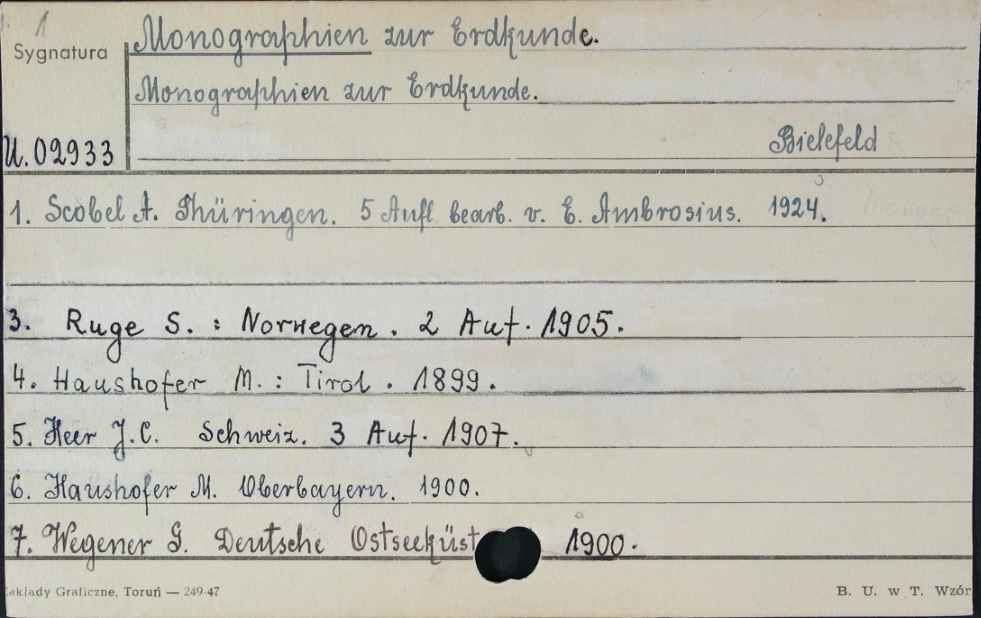 1
Monographien zur Erdkunde.
Sygnatura
Monographien zur Erdkunde.
Bielefeld
U. 02933
1. Scobel A. Thüringen. 5 Aufl bearb. v. E. Ambrosius. 1924.
3. Ruge S. : Norwegen. 2 Auf. 1905.
4. Haushofer M. : Tirol. 1899.
5. Heer J.C. Schweiz. 3 Auf. 1907.
6. Haushofer M. Oberbayern. 1900.
7. Wegener G. Deutsche Ostseeküst 1900.
akłady Graficzne, Toruń — 249-47
B. U. w T. Wzór